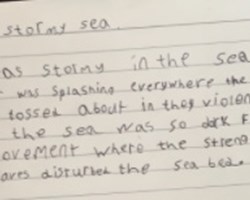 stormy sea
as stormy in the sea
was splashing everywhere the
tossed about in they violen
the sea was so dark F
ovement where the streng
aves disturbed the sea bed.